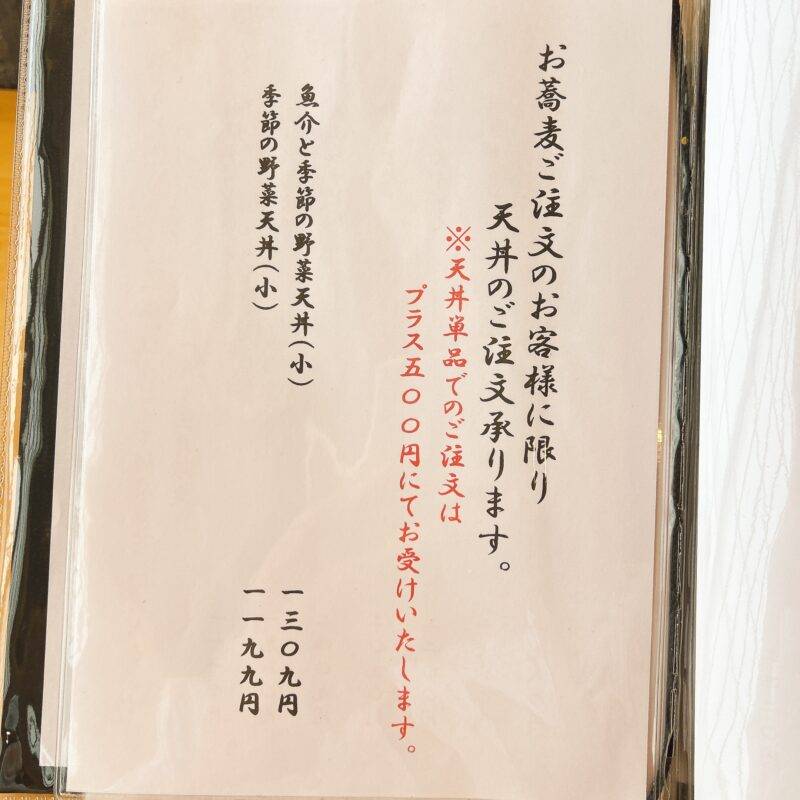 お蕎麦ご注文のお客様に限り
天丼のご注文承ります。
※天丼単品でのご注文は
プラス五〇〇円にてお受けいたします。
魚介と季節の野菜天丼(小) 一三〇九円
季節の野菜天丼(小) 一一九九円